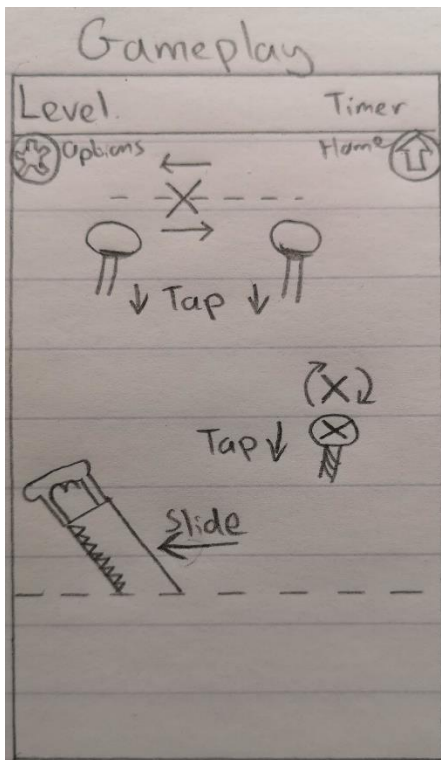 Gameplay
Level. Timer
Options Home
Tap
Tap
Slide